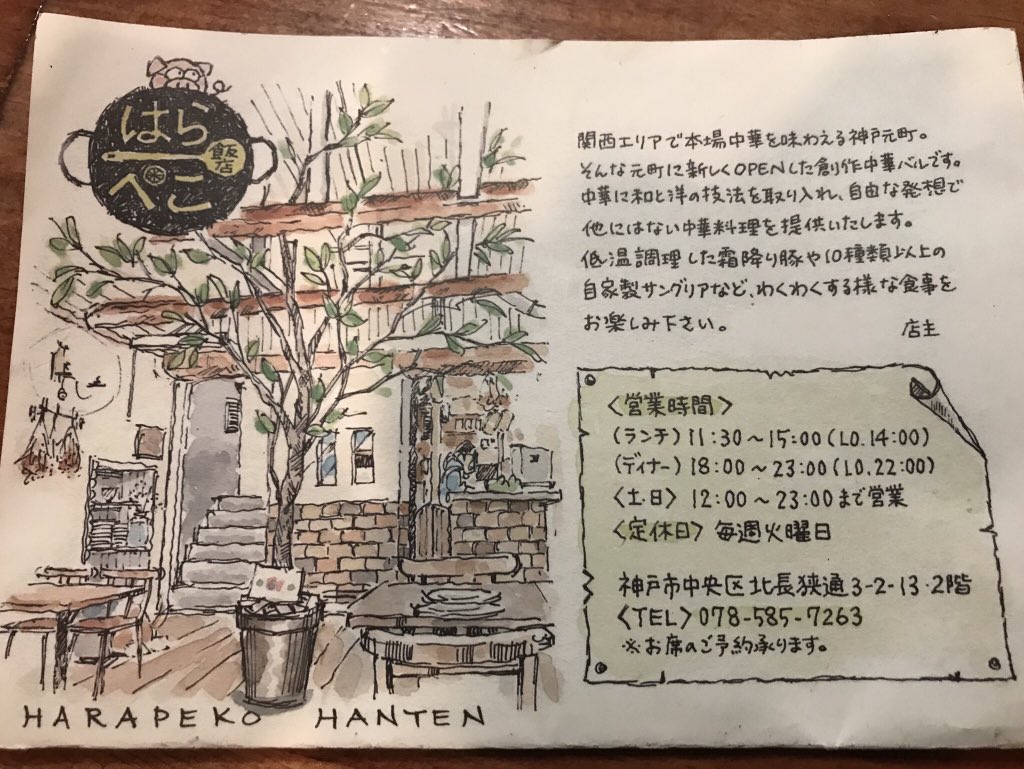 はら
ぺこ
飯店
関西エリアで本場中華を味わえる神戸元町。
そんな元町に新しくOPENした創作中華バルです。
中華に和と洋の技法を取り入れ、自由な発想で
他にはない中華料理を提供いたします。
低温調理した霜降り豚や10種類以上の
自家製サングリアなど、わくわくする様な食事を
お楽しみ下さい。
店主
〈営業時間〉
(ランチ) 11:30～15:00 (LO.14:00)
(ディナー) 18:00～23:00 (LO.22:00)
〈土・日〉 12:00～23:00まで営業
〈定休日〉 毎週火曜日
神戸市中央区北長狭通3-2-13・2階
〈TEL〉078-585-7263
※お席のご予約承ります。
HARAPEKO HANTEN